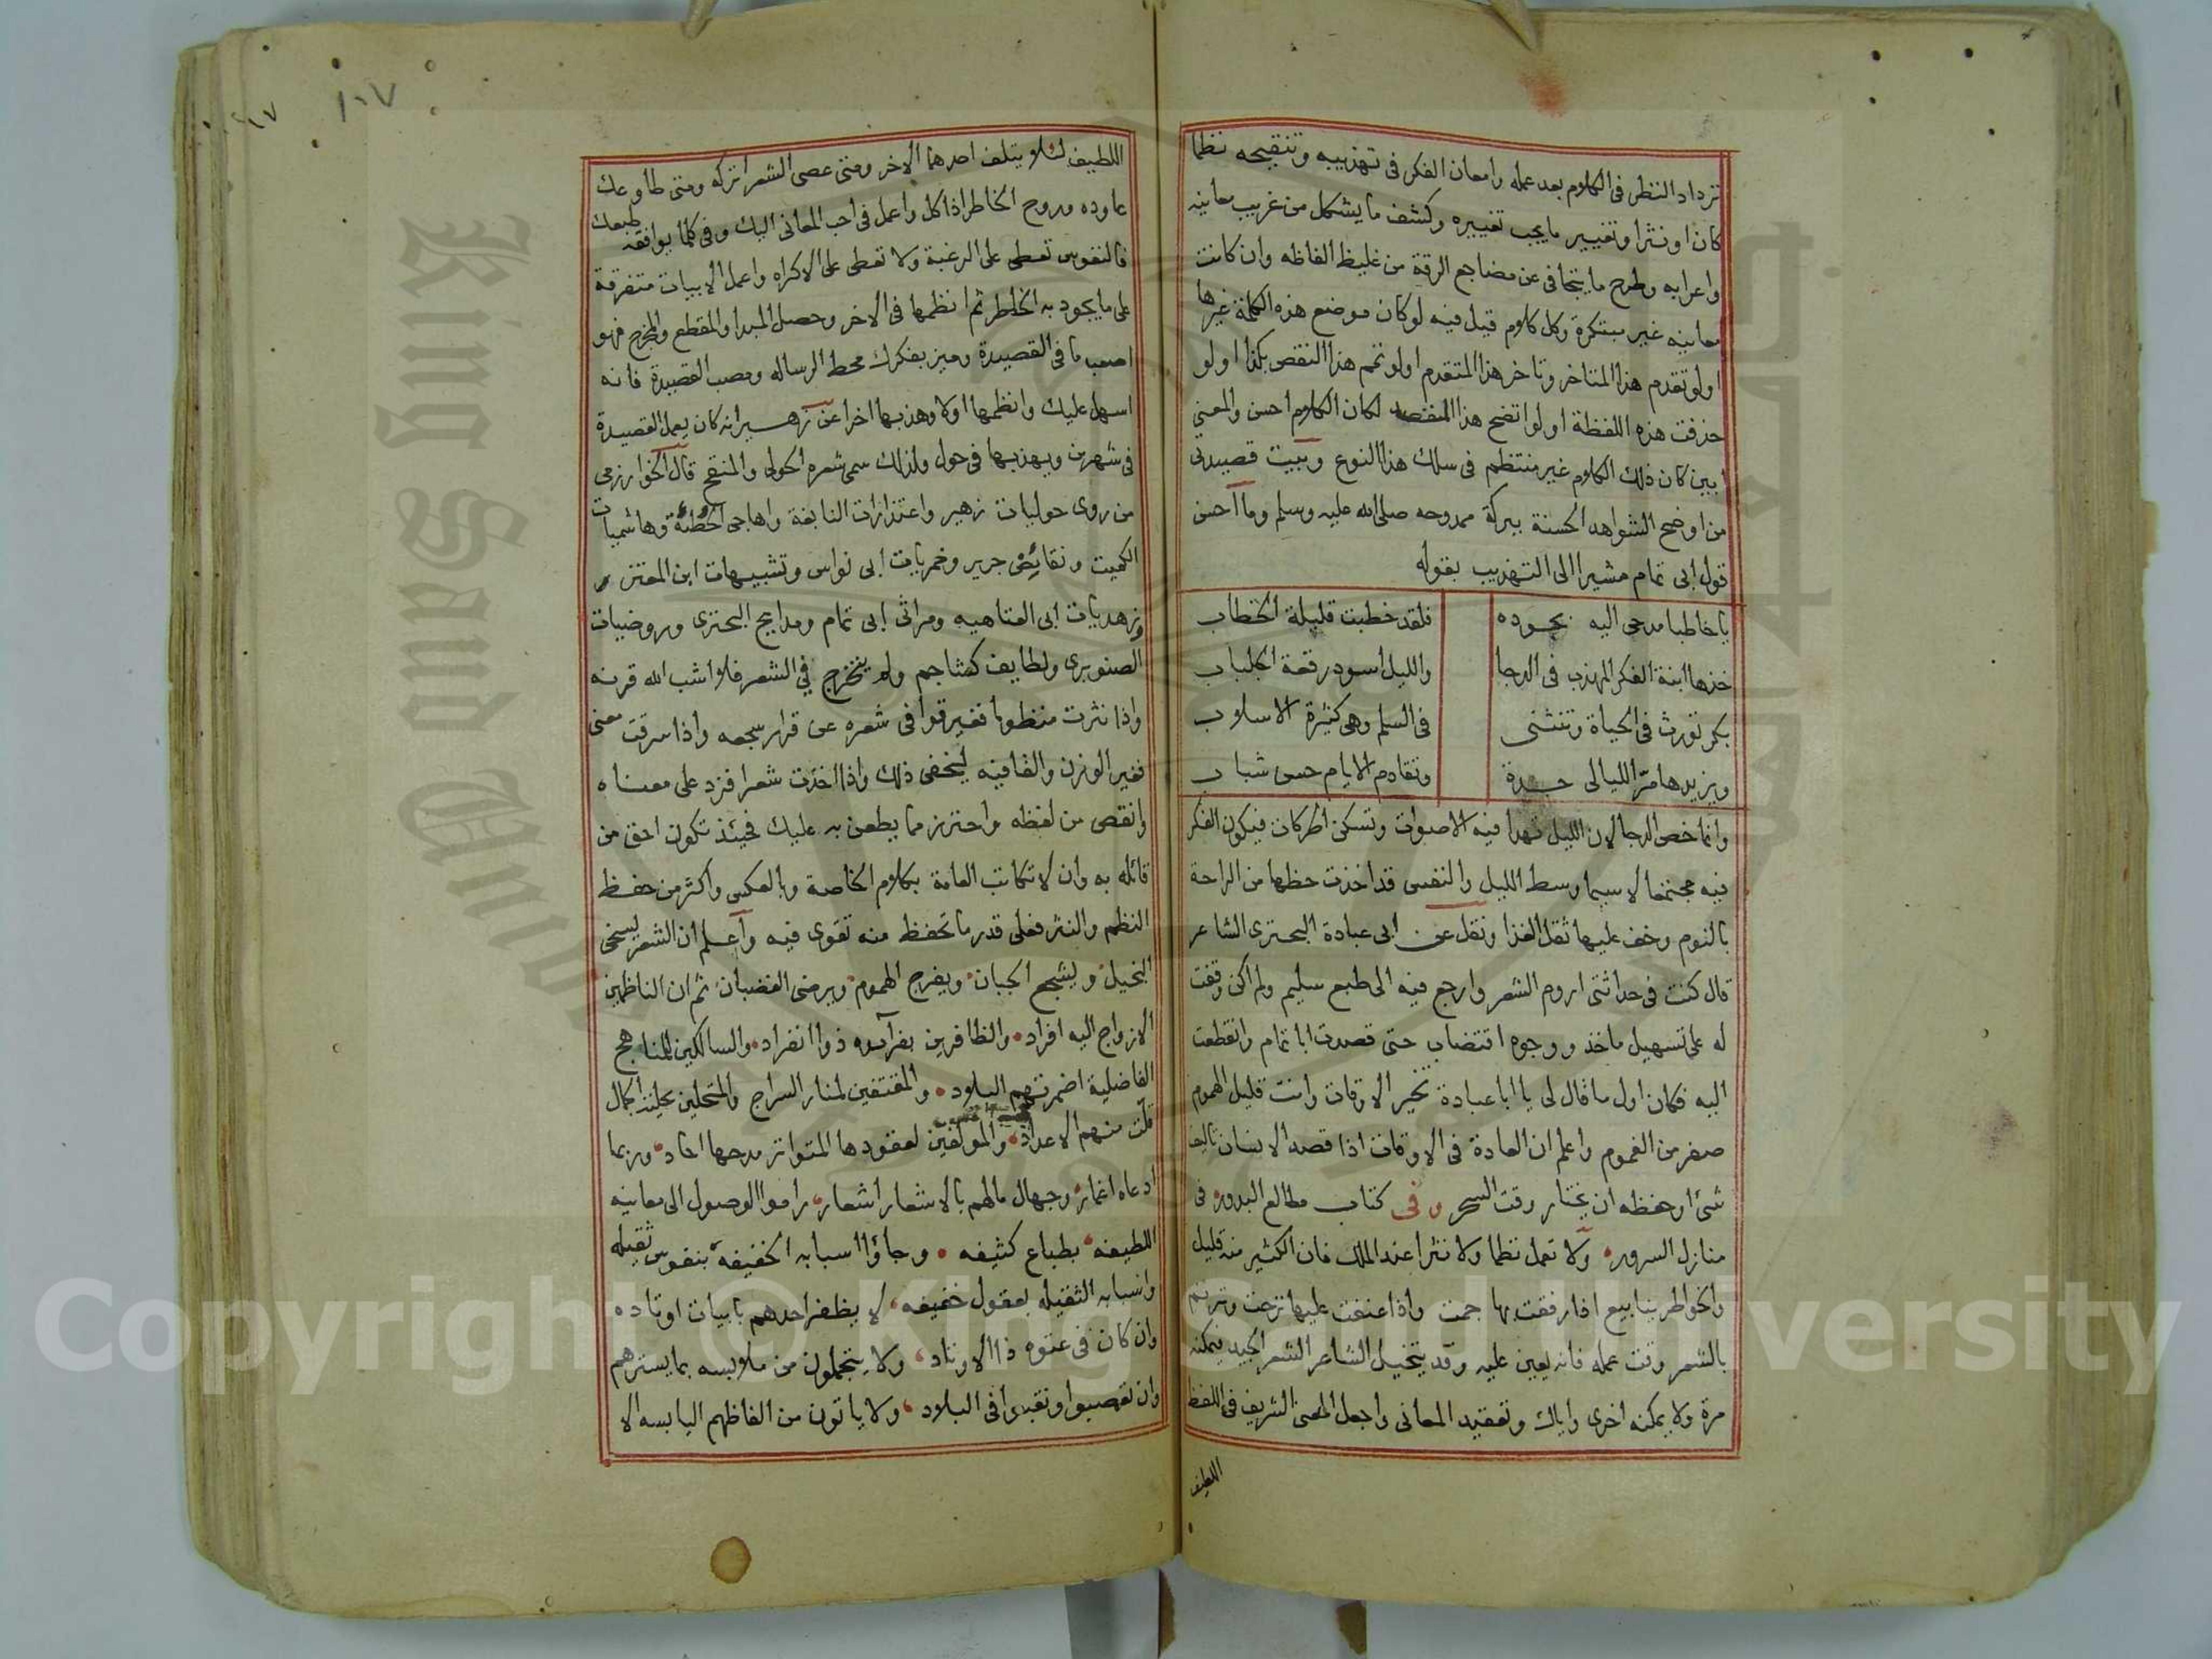 تزداد النظر فى الكلام بعد عمله وامعان الفكر فى تهذيبه وتنقيحه نظما
كان او نثرا وتغيير ما يجب تغييره وكشف ما يشكل من غريب معانيه
واعرابه وطرح ما يتجافى عن مضاجع الرقة من غليظ الفاظه وان كانت
معانيه غير مبتكرة وكل كلام قيل فيه لو كان موضع هذه الكلمة غيرها
او لو تقدم هذا المتاخر وتاخر هذا المتقدم او لو تمم هذا النقص بكذا او لو
حذفت هذه اللفظة او لو اتضح هذا المقصد لكان الكلام احسن والمعنى
ابين كان ذلك الكلام غير منتظم فى سلك هذا النوع وبيت قصيدتى
من اوضح الشواهد الحسنة ببركة ممدوحه صلى الله عليه وسلم وما احسن
قول ابى تمام مشيرا الى التهذيب بقوله
يا خاطبا مدحى اليه بجوده فلقد خطبت قليلة الخطاب
خذها ابنة الفكر المهذب فى الدجا والليل اسود رقعة الجلباب
بكر تورث فى الحياة وتنثنى فى السلم وهى كثيرة الاسلاب
ويزيدها مرّ الليالى جدة وتقادم الايام حسن شباب
وانما خص الدجا لان الليل تهدا فيه الاصوات وتسكن الحركات فيكون الفكر
فيه مجتمعا لا سيما وسط الليل والنفس قد اخذت حظها من الراحة
بالنوم وخف عليها ثقل الغذا ونقل عن ابى عبادة البحترى الشاعر
قال كنت فى حداثتى اروم الشعر وارجع فيه الى طبع سليم ولم اكن وقفت
له على تسهيل ماخذ ووجوه اقتضاب حتى قصدت ابا تمام وانقطعت
اليه فكان اول ما قال لى يا ابا عبادة تخير الاوقات وانت قليل الهموم
صفر من الغموم واعلم ان العادة فى الاوقات اذا قصد الانسان تاليف
شئ او حفظه ان يختار وقت السحر وفى كتاب مطالع البدور فى
منازل السرور ولا تعمل نظما ولا نثرا عند الملل فان الكثير منه قليل
والخواطر ينابيع اذا رفقت بها جمت واذا عنفت عليها نزحت وترنم
بالشعر وقت عمله فانه يعين عليه وقد يتخيل الشاعر الشعر الجيد يمكنه
مرة ولا يمكنه اخرى واياك وتعقيد المعانى واجعل المعنى الشريف فى اللفظ
اللطيف
١٠٧
اللطيف لئلا يتلف احدهما الاخر ومتى عصى الشعر اتركه ومتى طاوعك
عاوده وروح الخاطر اذا كل واعمل فى احب المعانى اليك وفى كلما يوافقه طبعك
فالنفوس تعطى على الرغبة ولا تعطى على الاكراه واعمل الابيات متفرقة
على ما يجود به الخاطر ثم انظمها فى الاخر وحصل المبدا والمقطع والمخرج فهو
اصعب ما فى القصيدة وميز بفكرك محط الرساله ومصب القصيدة فانه
اسهل عليك وانظمها اولا وهذبها اخرا عن زهير انه كان يعمل القصيدة
فى شهرين ويهذبها فى حول ولذلك سمى شعره الحولى والمنقح قال الخوارزمى
من روى حوليات زهير واعتذارات النابغة واهاجى الحطئة وهاشميات
الكميت ونقايض جرير وخمريات ابى نواس وتشبيهات ابن المعتز
وزهديات ابى العتاهيه ومراثى ابى تمام ومدايح البحترى وروضيات
الصنوبرى ولطايف كشاجم ولم يتخرج فى الشعر فلا اشب الله قرنه
واذا نثرت منظوما فغير قوافى شعره عن قرار سجعه واذا سرقت معنى
فغير الوزن والقافيه ليخفى ذلك واذا اخذت شعرا فزد على معناه
وانقص من لفظه واحترز مما يطعن به عليك فحينئذ تكون احق من
قائله به وان لا تكاتب العامة بكلام الخاصة وبالعكس واكثر من حفظ
النظم والنثر فعلى قدر ما تحفظ منه تقوى فيه واعلم ان الشعر يسخى
البخيل ويشجع الجبان ويفرج الهموم ويرضى الغضبان ثم ان الناظمين
الازواج اليه افراد والظافرين بفرآيده ذوا انفراد والسالكين للمناهج
الفاضلية اضمرتهم البلاد والمقتفين لمنار السراج والمتحلين بحلية الكمال
قلّت منهم الاعداد والمولفين لعقودها المتواتر مدحها احاد وربما
ادعاه اغمار وجهال مالهم بالاشعار اشعار راموا الوصول الى معانيه
اللطيفه بطباع كثيفه وجاؤا اسبابه الخفيفة بنفوس ثقيله
واسبابه الثقيله بعقول خفيفه لا يظفر احدهم بابيات اوتاده
وان كان فى عتوه ذا الاوتاد ولا يتجملون من ملابسه بما يسترهم
وان تعصبوا ونقبوا فى البلاد ولا ياتون من الفاظهم اليابسه الا
King Saud University
Copyright © King Saud University